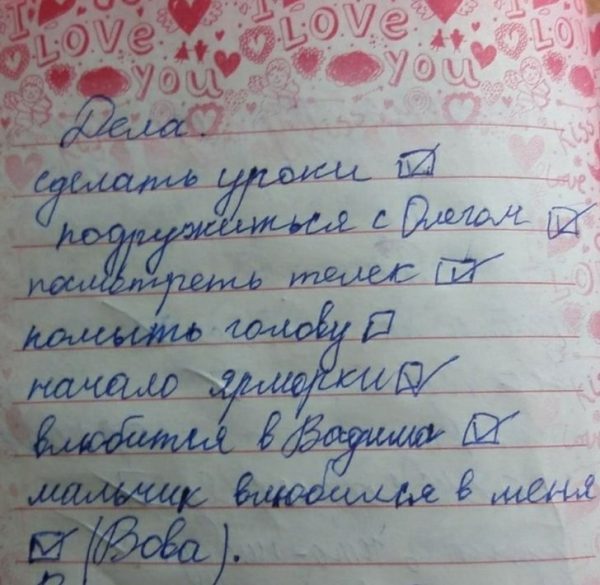 I LOVE YOU I LOVE YOU I LOVE
Дела.
сделать уроки ☑
подружиться с Олегом ☑
посмотреть телек ☑
помыть голову ☐
начало ярморки ☑
влюбится в Вадима ☑
мальчик влюбился в меня
☑ (Вова).